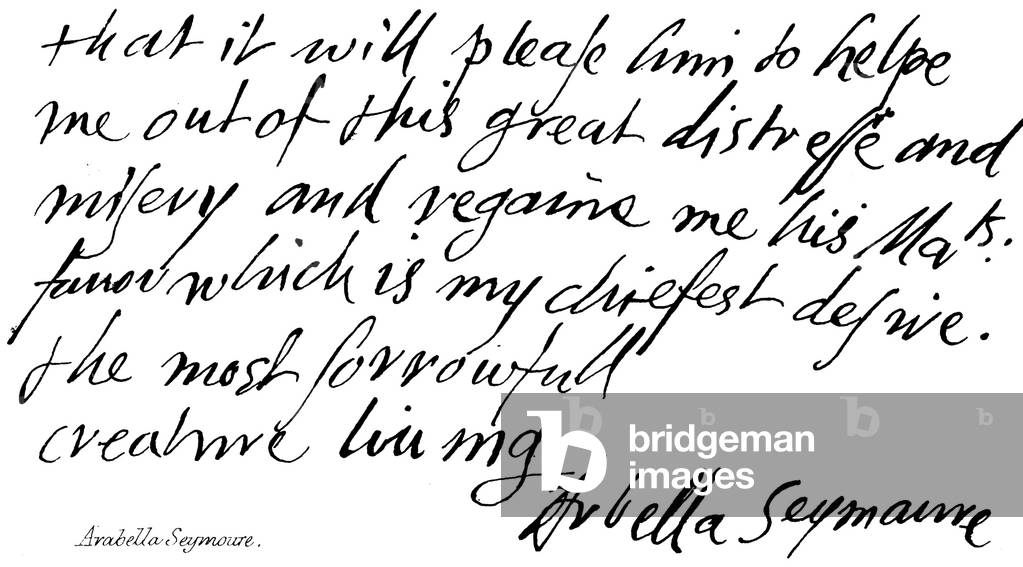 that it will please him to helpe
me out of this great distresse and
misery and regaine me his Ma^ts.
fauor which is my chiefest desire.
the most sorrowfull
creature liuing
Arbella Seymaure
Arabella Seymoure.
bridgeman
images